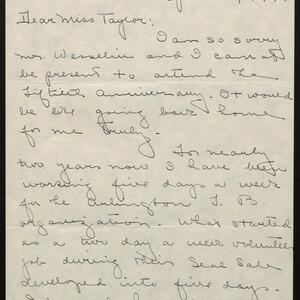 Dear Miss Taylor:
I am so sorry
Mr. Wesselius and I cannot
be present to attend the
fiftieth anniversary. It would
be like going back home
for me truly.
For nearly
two years now I have been
working five days a week
for the Arlington T. B.
organization. What started
as a two day a week volunteer
job during their Seal Sale
developed into five days.